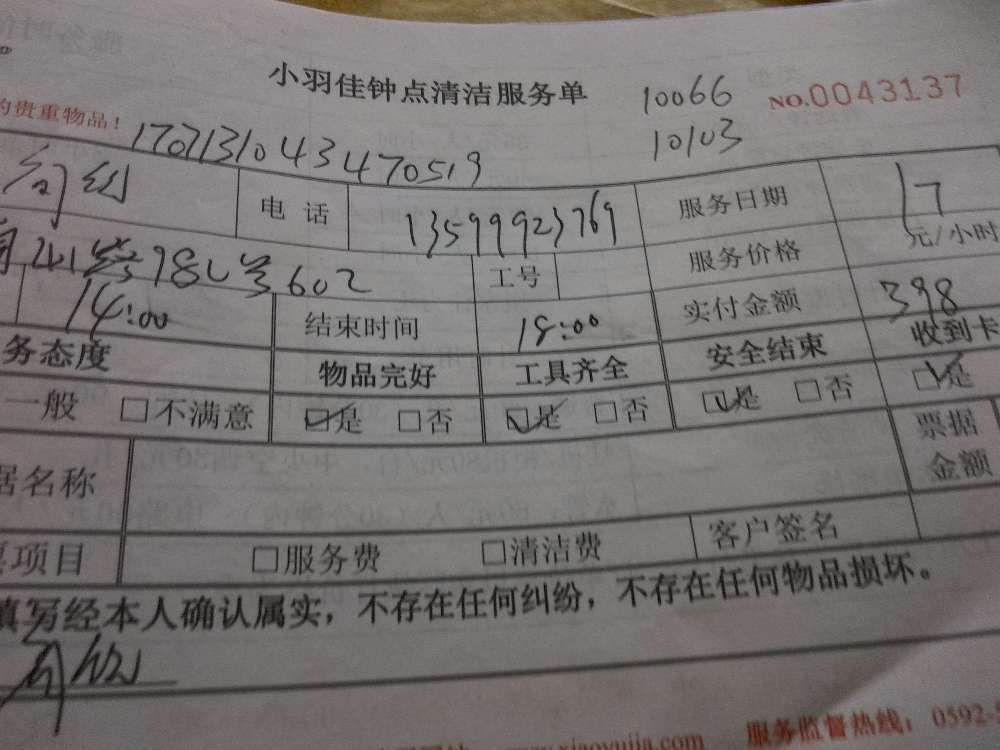 小羽佳钟点清洁服务单 10066 NO.0043137
的贵重物品！ 1707131043470519 10103
电话 13599923769 服务日期 17
98号602 工号 服务价格 元/小时
14:00 结束时间 18:00 实付金额 398
务态度 物品完好 工具齐全 安全结束 收到卡
一般 □不满意 ☑是 □否 ☑是 □否 ☑是 □否 ☑是
居名称 票据金额
票项目 □服务费 □清洁费 客户签名
填写经本人确认属实，不存在任何纠纷，不存在任何物品损坏。
www.xiaoyujia.com 服务监督热线：0592-